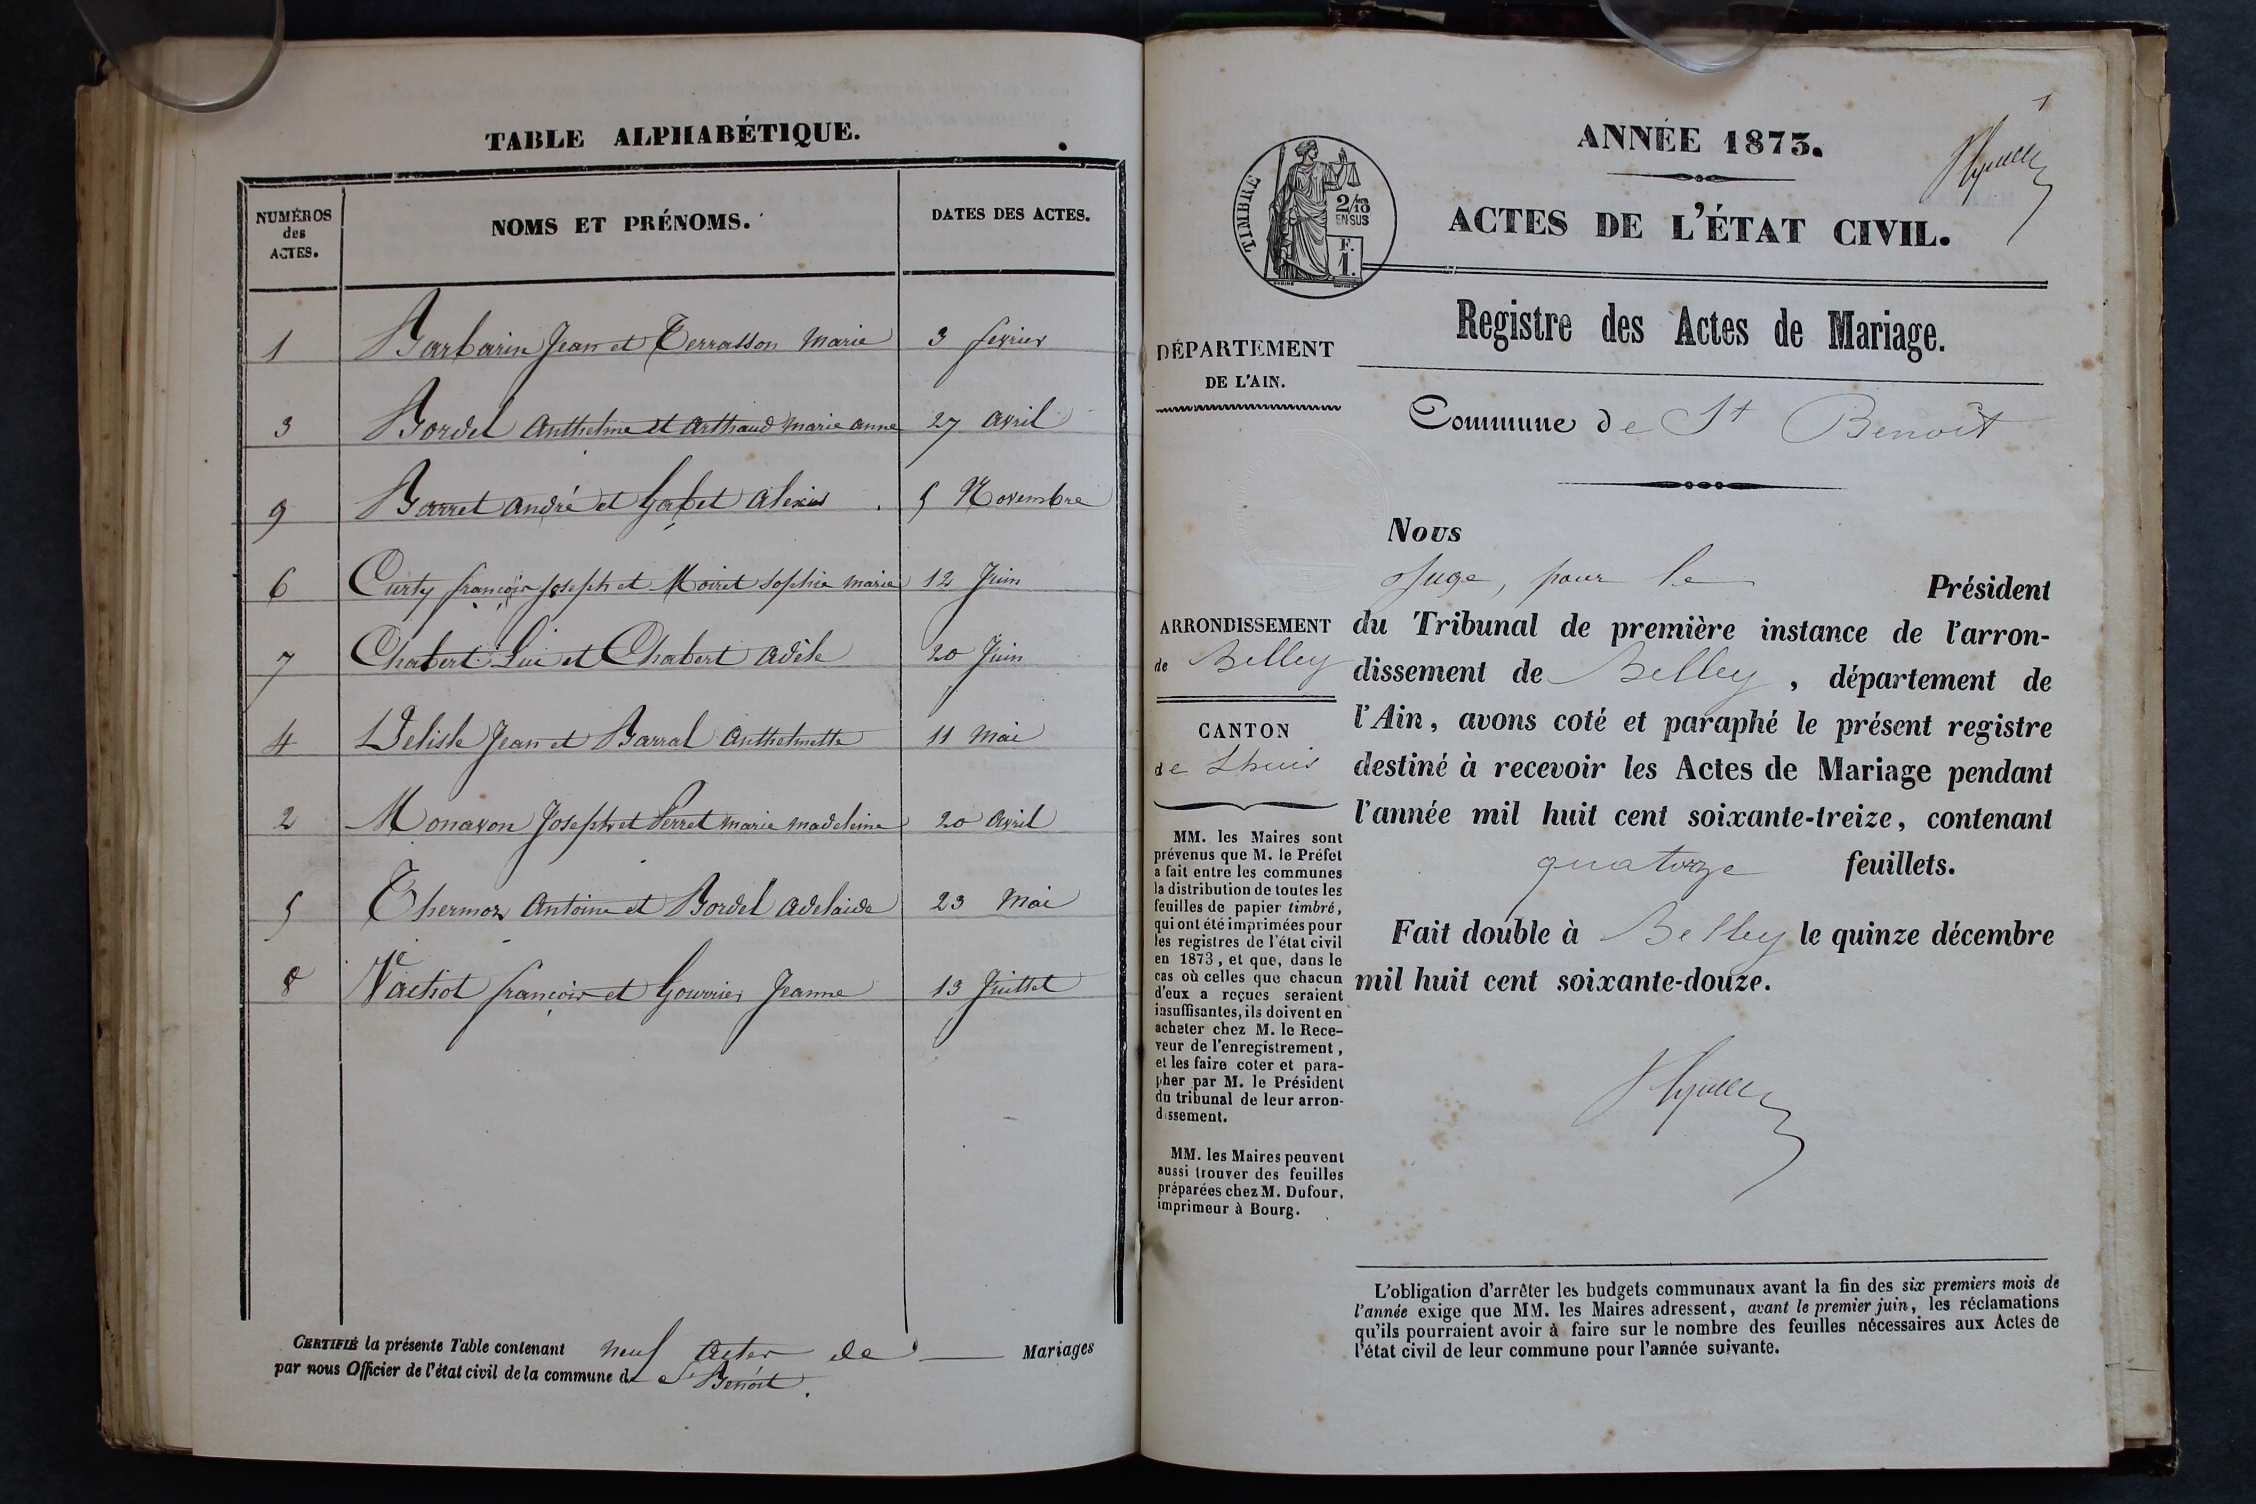 TABLE ALPHABÉTIQUE.
NUMÉROS
des
ACTES.
NOMS ET PRÉNOMS.
DATES DES ACTES.
1 Barbarin Jean et Terrasson Marie 3 fevrier
3 Bordel Anthelme et Arthaud Marie Anne 27 Avril
9 Barret André et Gabet Alexis 5 Novembre
6 Curty françois Joseph et Moiret Sophie Marie 12 Juin
7 Chabert Luc et Chabert Adèle 20 Juin
4 Delisle Jean et Barral Anthelmette 11 Mai
2 Monavon Joseph et Perret Marie Madeleine 20 Avril
5 Thermoz Antoine et Bordel Adelaide 23 Mai
8 Vachot françois et Gourrier Jeanne 13 Juillet
CERTIFIÉ la présente Table contenant neuf actes de Mariages
par nous Officier de l'état civil de la commune de St Benoit.
1
ANNÉE 1873.
TIMBRE
2/10
EN SUS
F.
1.
ACTES DE L'ÉTAT CIVIL.
Registre des Actes de Mariage.
DÉPARTEMENT
DE L'AIN.
Commune de St Benoît
ARRONDISSEMENT
de Belley
CANTON
de Lhuis
MM. les Maires sont
prévenus que M. le Préfet
a fait entre les communes
la distribution de toutes les
feuilles de papier timbré,
qui ont été imprimées pour
les registres de l'état civil
en 1873, et que, dans le
cas où celles que chacun
d'eux a reçues seraient
insuffisantes, ils doivent en
acheter chez M. le Rece-
veur de l'enregistrement,
et les faire coter et para-
pher par M. le Président
du tribunal de leur arron-
dissement.
MM. les Maires peuvent
aussi trouver des feuilles
préparées chez M. Dufour,
imprimeur à Bourg.
Nous
Juge, pour le Président
du Tribunal de première instance de l'arron-
dissement de Belley, département de
l'Ain, avons coté et paraphé le présent registre
destiné à recevoir les Actes de Mariage pendant
l'année mil huit cent soixante-treize, contenant
quatorze feuillets.
Fait double à Belley le quinze décembre
mil huit cent soixante-douze.
L'obligation d'arrêter les budgets communaux avant la fin des six premiers mois de
l'année exige que MM. les Maires adressent, avant le premier juin, les réclamations
qu'ils pourraient avoir à faire sur le nombre des feuilles nécessaires aux Actes de
l'état civil de leur commune pour l'année suivante.